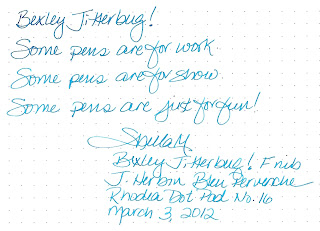 Bexley Jitterbug!
Some pens are for work
Some pens are for show
Some pens are just for fun!
Bexley Jitterbug! F nib
J. Herbin Bleu Pervenche
Rhodia Dot Pad No. 16
March 3, 2012